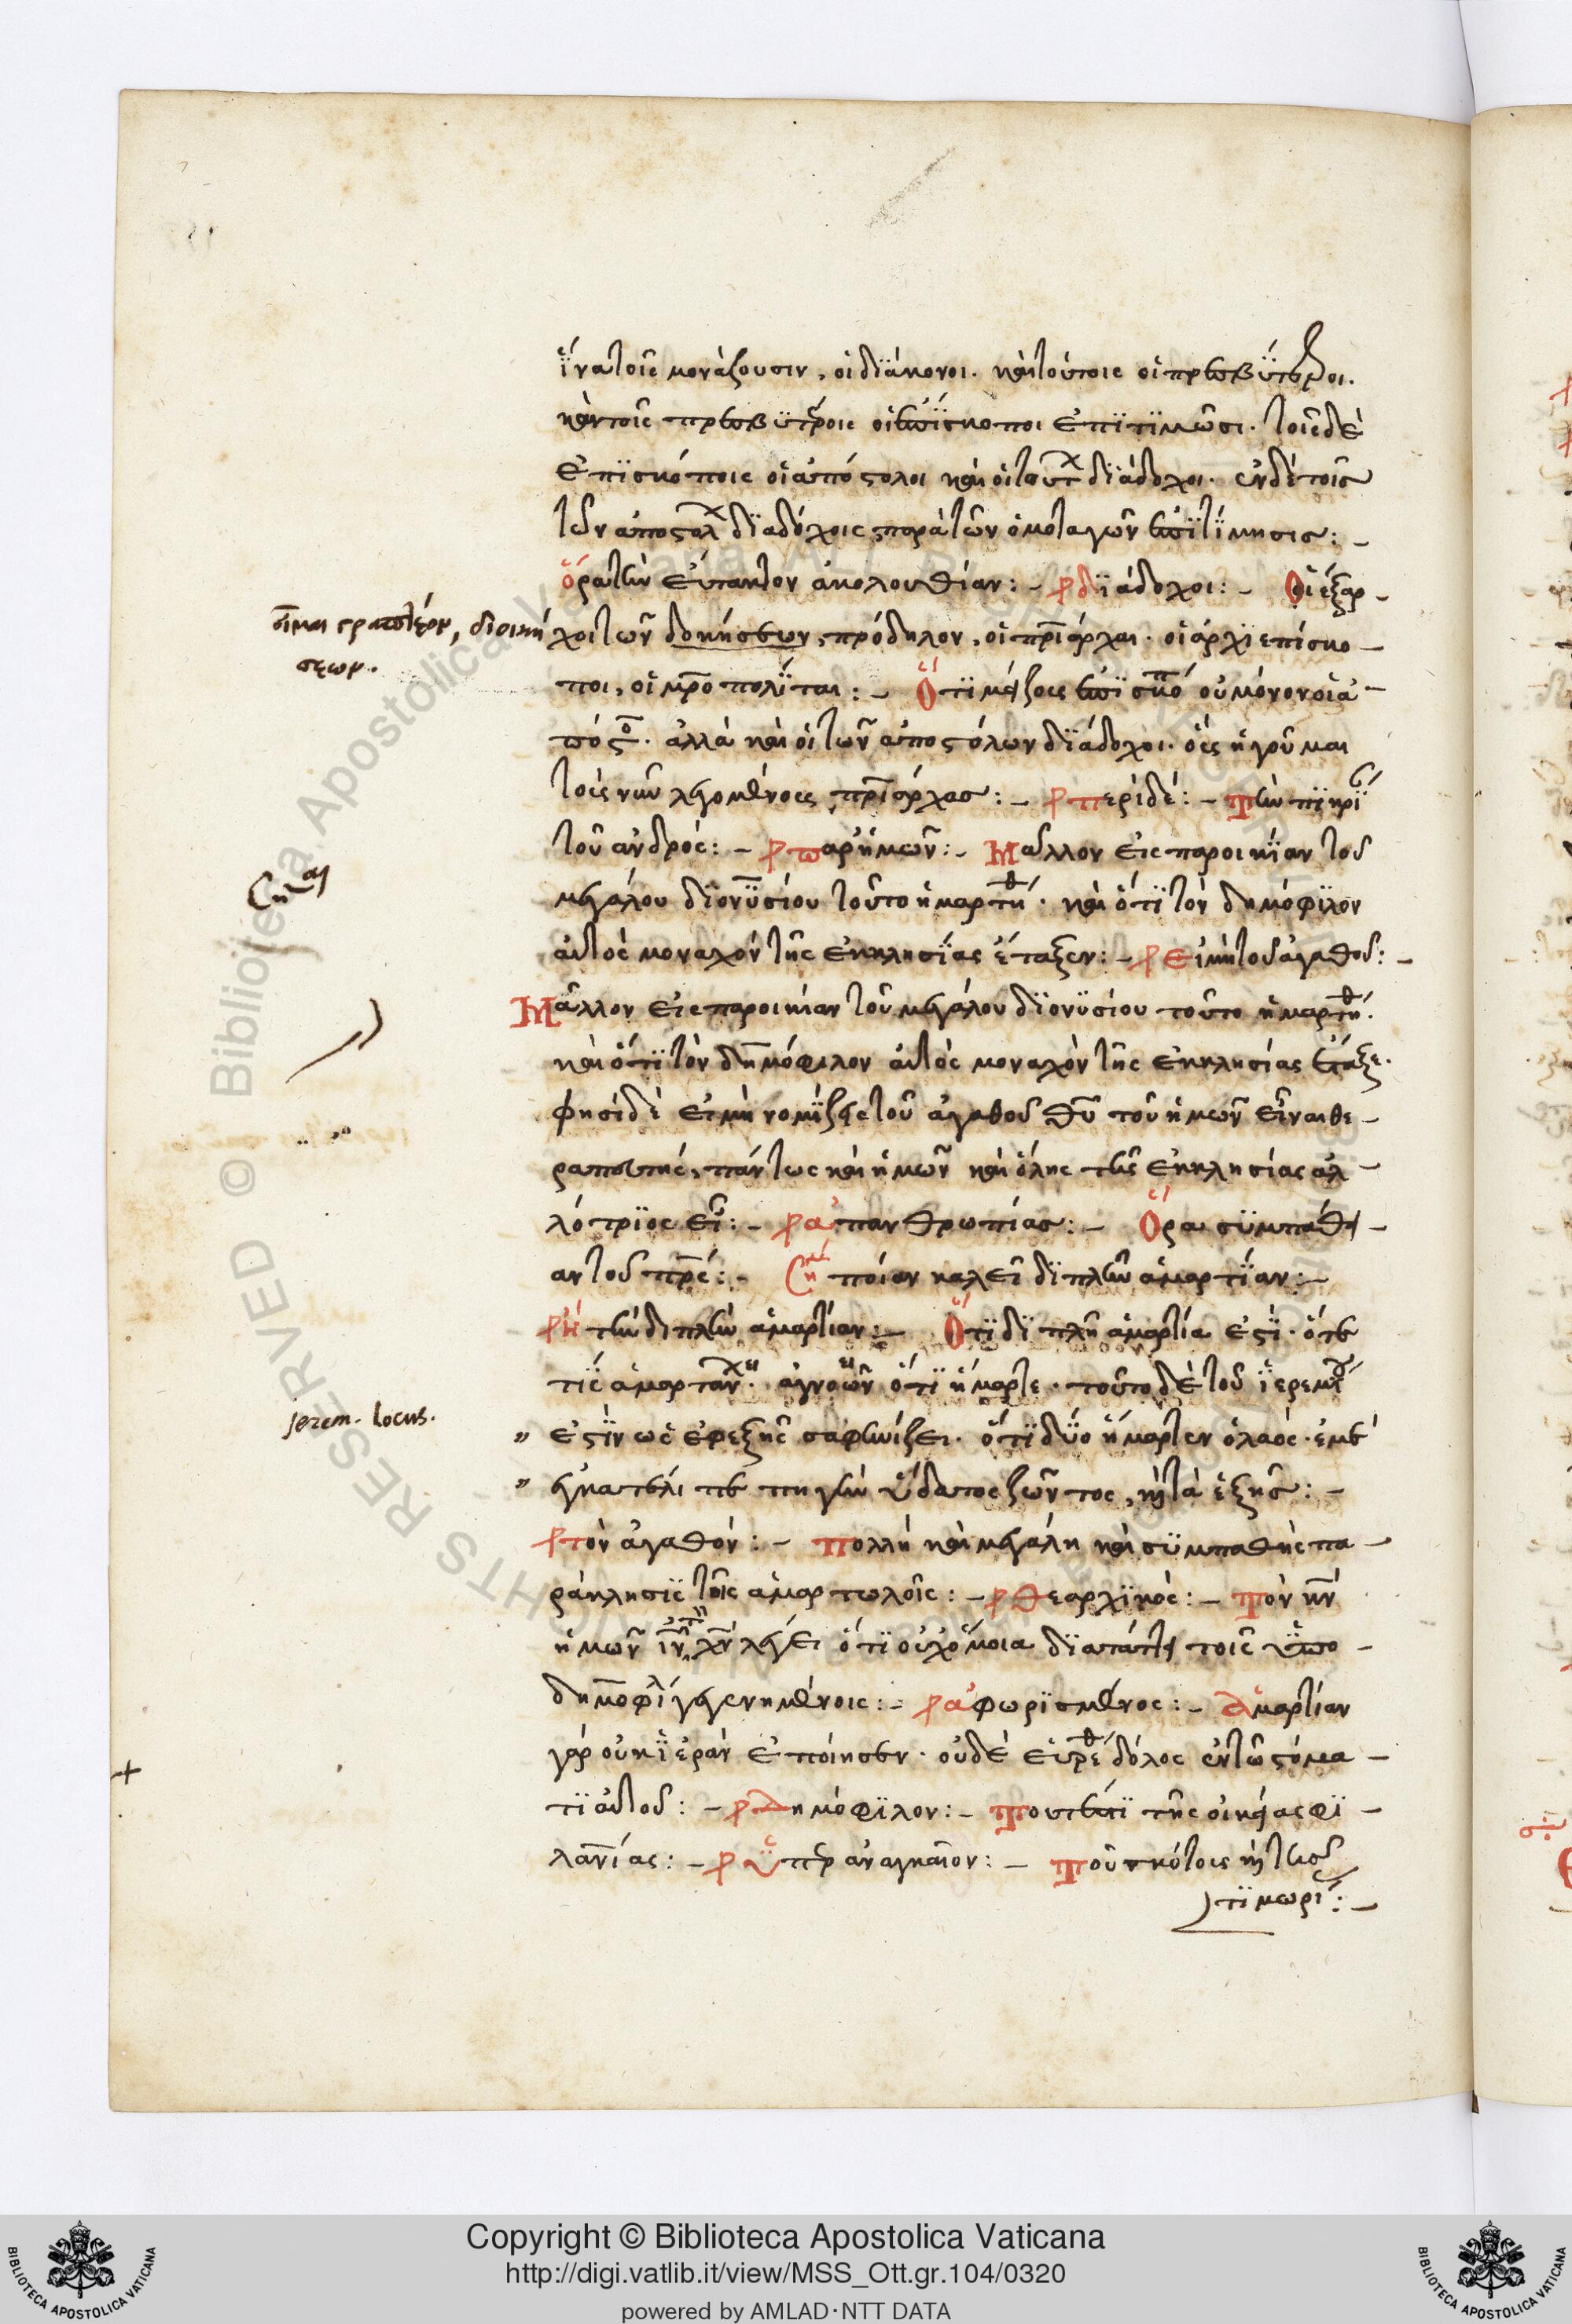 ἵνα τοῖς μονάζουσιν, οἱ διάκονοι. καὶ τούτοις οἱ πρεσβύτεροι.
καὶ τοῖς πρεσβυτέροις οἱ ἐπίσκοποι ἐπιτιμῶσι. τοῖς δὲ
ἐπισκόποις οἱ ἀπόστολοι καὶ οἱ τούτων διάδοχοι. ἐν δὲ τοῖς
τῶν ἀποστόλων διαδόχοις, παρὰ τῶν ὁμοταγῶν ἐπιτίμησις: –
ὅρα τὴν εὔτακτον ἀκολουθίαν: – διάδοχοι: – Οἱ ἔξαρ –
οἶμαι γραπτέον, διοική
σεων.
χοι τῶν δοκήσεων, πρόδηλον, οἱ πρῖάρχαι. οἱ ἀρχιεπίσκο –
ποι, οἱ μροπολῖται: – Ὅτι μείζους ἐπισκο οὐ μόνον οἱ ἀ –
πόστο. ἀλλὰ καὶ οἱ τῶν ἀποστόλων διάδοχοι. οὓς ἡγοῦμαι
τοὺς νῦν λεγομένους πρῖάρχας: – περὶ δέ: – Τὴν πικρί
τοῦ ἀνδρός: – παρ' ἡμῶν: – Μᾶλλον εἰς παροικίαν τοῦ
Ση αι
μεγάλου διονυσίου τοῦτο ἡμαρτήθ. καὶ ὅτι τὸν δημόφιλον
αὐτὸς μοναχὸν τῆς ἐκκλησίας ἔταξεν: – εἰ μὴ τοῦ ἀγαθοῦ: –
Μᾶλλον εἰς παροικίαν τοῦ μεγάλου διονυσίου τοῦτο ἡμαρτήθ.
καὶ ὅτι τὸν δημόφιλον αὐτὸς μοναχὸν τῆς ἐκκλησίας ἔταξε.
φησὶ δὲ εἰ μὴ νομίζεις τοῦ ἀγαθοῦ θυ τοῦ ἡμῶν εἶναι θε –
ραπευτής, πάντως καὶ ἡμῶν καὶ ὅλης τῆς ἐκκλησίας ἀλ –
λότριος εἶ: – ἀπανθρωπίας: – Ὅρα συμπάθει –
αν τοῦ πρς: – Ση ποίαν καλεῖ διπλῆν ἁμαρτίαν: –
τὴν διπλῆν ἁμαρτίαν: – Ὅτι διπλῆ ἁμαρτία ἐστὶ. ὅτε
τὶς ἁμαρτάν. ἀγνοῶν ὅτι ἥμαρτε. τοῦτο δὲ τοῦ ἱερεμί
Jerem. locus.
" ἐστὶν ὡς ἐφεξῆς σαφηνίζει. ὅτι δύο ἥμαρτεν ὁ λαός. ἐμὲ
" ἐγκατέλιπε πηγὴν ὕδατος ζῶντος, καὶ τὰ ἑξῆς: –
τὸν ἀγαθόν: – Πολλὴ καὶ μεγάλη καὶ συμπαθὴς πα –
ράκλησις τοῖς ἁμαρτωλοῖς: – θεαρχικός: – Τὸν κν
ἡμῶν ιν χν λέγει ὅτι οὐχ ὅμοια διαπράττει τοῖς ὑπὸ –
δημοφίλ γεγενημένοις: – ἀφωρισμένος: – Ἁμαρτίαν
γὰρ οὐκ ἱερὰν ἐποίησεν. οὐδὲ εὑρέθ δόλος ἐν τῷ στόμα –
+
τι αὐτοῦ: – Δημόφιλον: – Τουτέστι τῆς οἰκείας φι –
λανίας: – ὑπὲρ ἀναγκαῖον: – Τοῦ σκότους καὶ τῆς
τιμωρί: –
Copyright © Biblioteca Apostolica Vaticana
http://digi.vatlib.it/view/MSS_Ott.gr.104/0320
powered by AMLAD·NTT DATA
BIBLIOTECA APOSTOLICA VATICANA
BIBLIOTECA APOSTOLICA VATICANA